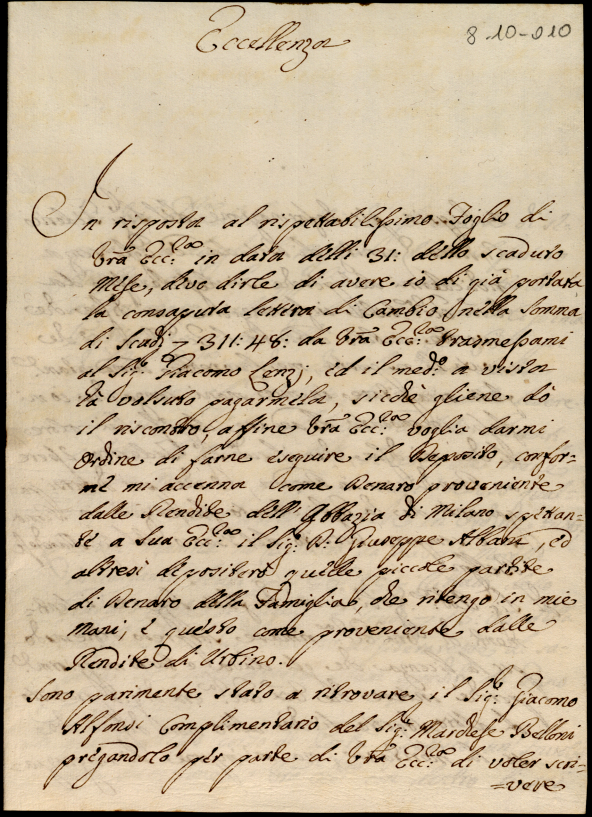 8-10-010
Eccellenza
In risposta al rispettabilissimo Foglio di
Vrã Ecc.za in data delli 31: dello scaduto
Mese, devo dirle di avere io di già portata
la consaputa lettera di Cambio nella somma
di Scudi 7 311: 48: da Vrã Ecc.za trasmessami
al Sig.r Giacomo Lenzi, ed il med.o a vista
là volsuto pagarmela, sicchè gliene dò
il riscontro, affine Vrã Ecc.za voglia darmi
Ordine di farne eseguire il Deposito, confor-
me mi accenna come Denaro proveniente
dalle Rendite dell' Abbazia di Milano spettan-
te a Sua Ecc.za il Sig.r D. Giuseppe Albani, ed
altresì depositerò quelle piccole partite
di Denaro della Famiglia, che ritengo in mie
Mani, e questo come proveniente dalle
Rendite di Urbino.
Sono parimente stato a ritrovare il Sig.r Giacomo
Alfonsi Complimentario del Sig.r Marchese Belloni
pregandolo per parte di Vrã Ecc.za di voler scri-
=vere